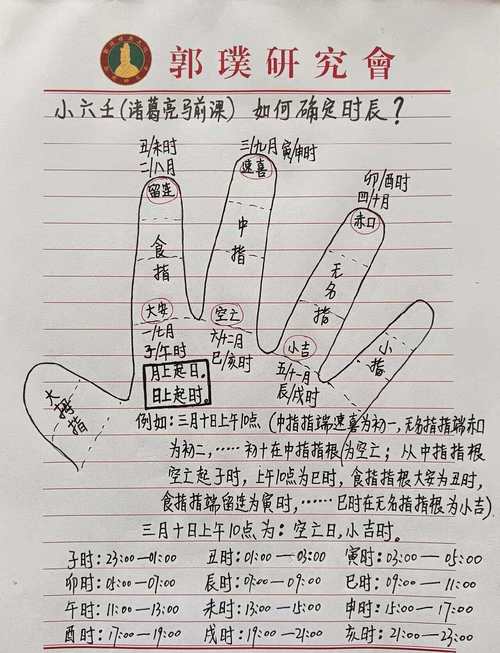 郭璞研究會
小六壬(诸葛亮马前课) 如何确定时辰?
丑/未时
二/八月
留连
三/九月 寅/申时
速喜
卯/酉时
四/十月
赤口
食指
中指
无名指
小指
大拇指
大安
一/七月
子/午时
空亡
六/十二月
巳/亥时
小吉
五/十一月
辰/戌时
月上起日.
日上起时.
例如:三月十日上午10点(中指指端速喜为初一,无名指指端赤口
为初二,……初十在中指指根为空亡;从中指指根
空亡起子时,上午10点为巳时,食指指根大安为丑时,
食指指端留连为寅时,……巳时在无名指指根为小吉).
三月十日上午10点为:空亡日,小吉时。
子时:23:00—01:00 丑时:01:00—03:00 寅时:03:00—05:00
卯时:05:00—07:00 辰时:07:00—09:00 巳时:09:00—11:00
午时:11:00—13:00 未时:13:00—15:00 申时:15:00—17:00
酉时:17:00—19:00 戌时:19:00—21:00 亥时:21:00—23:00